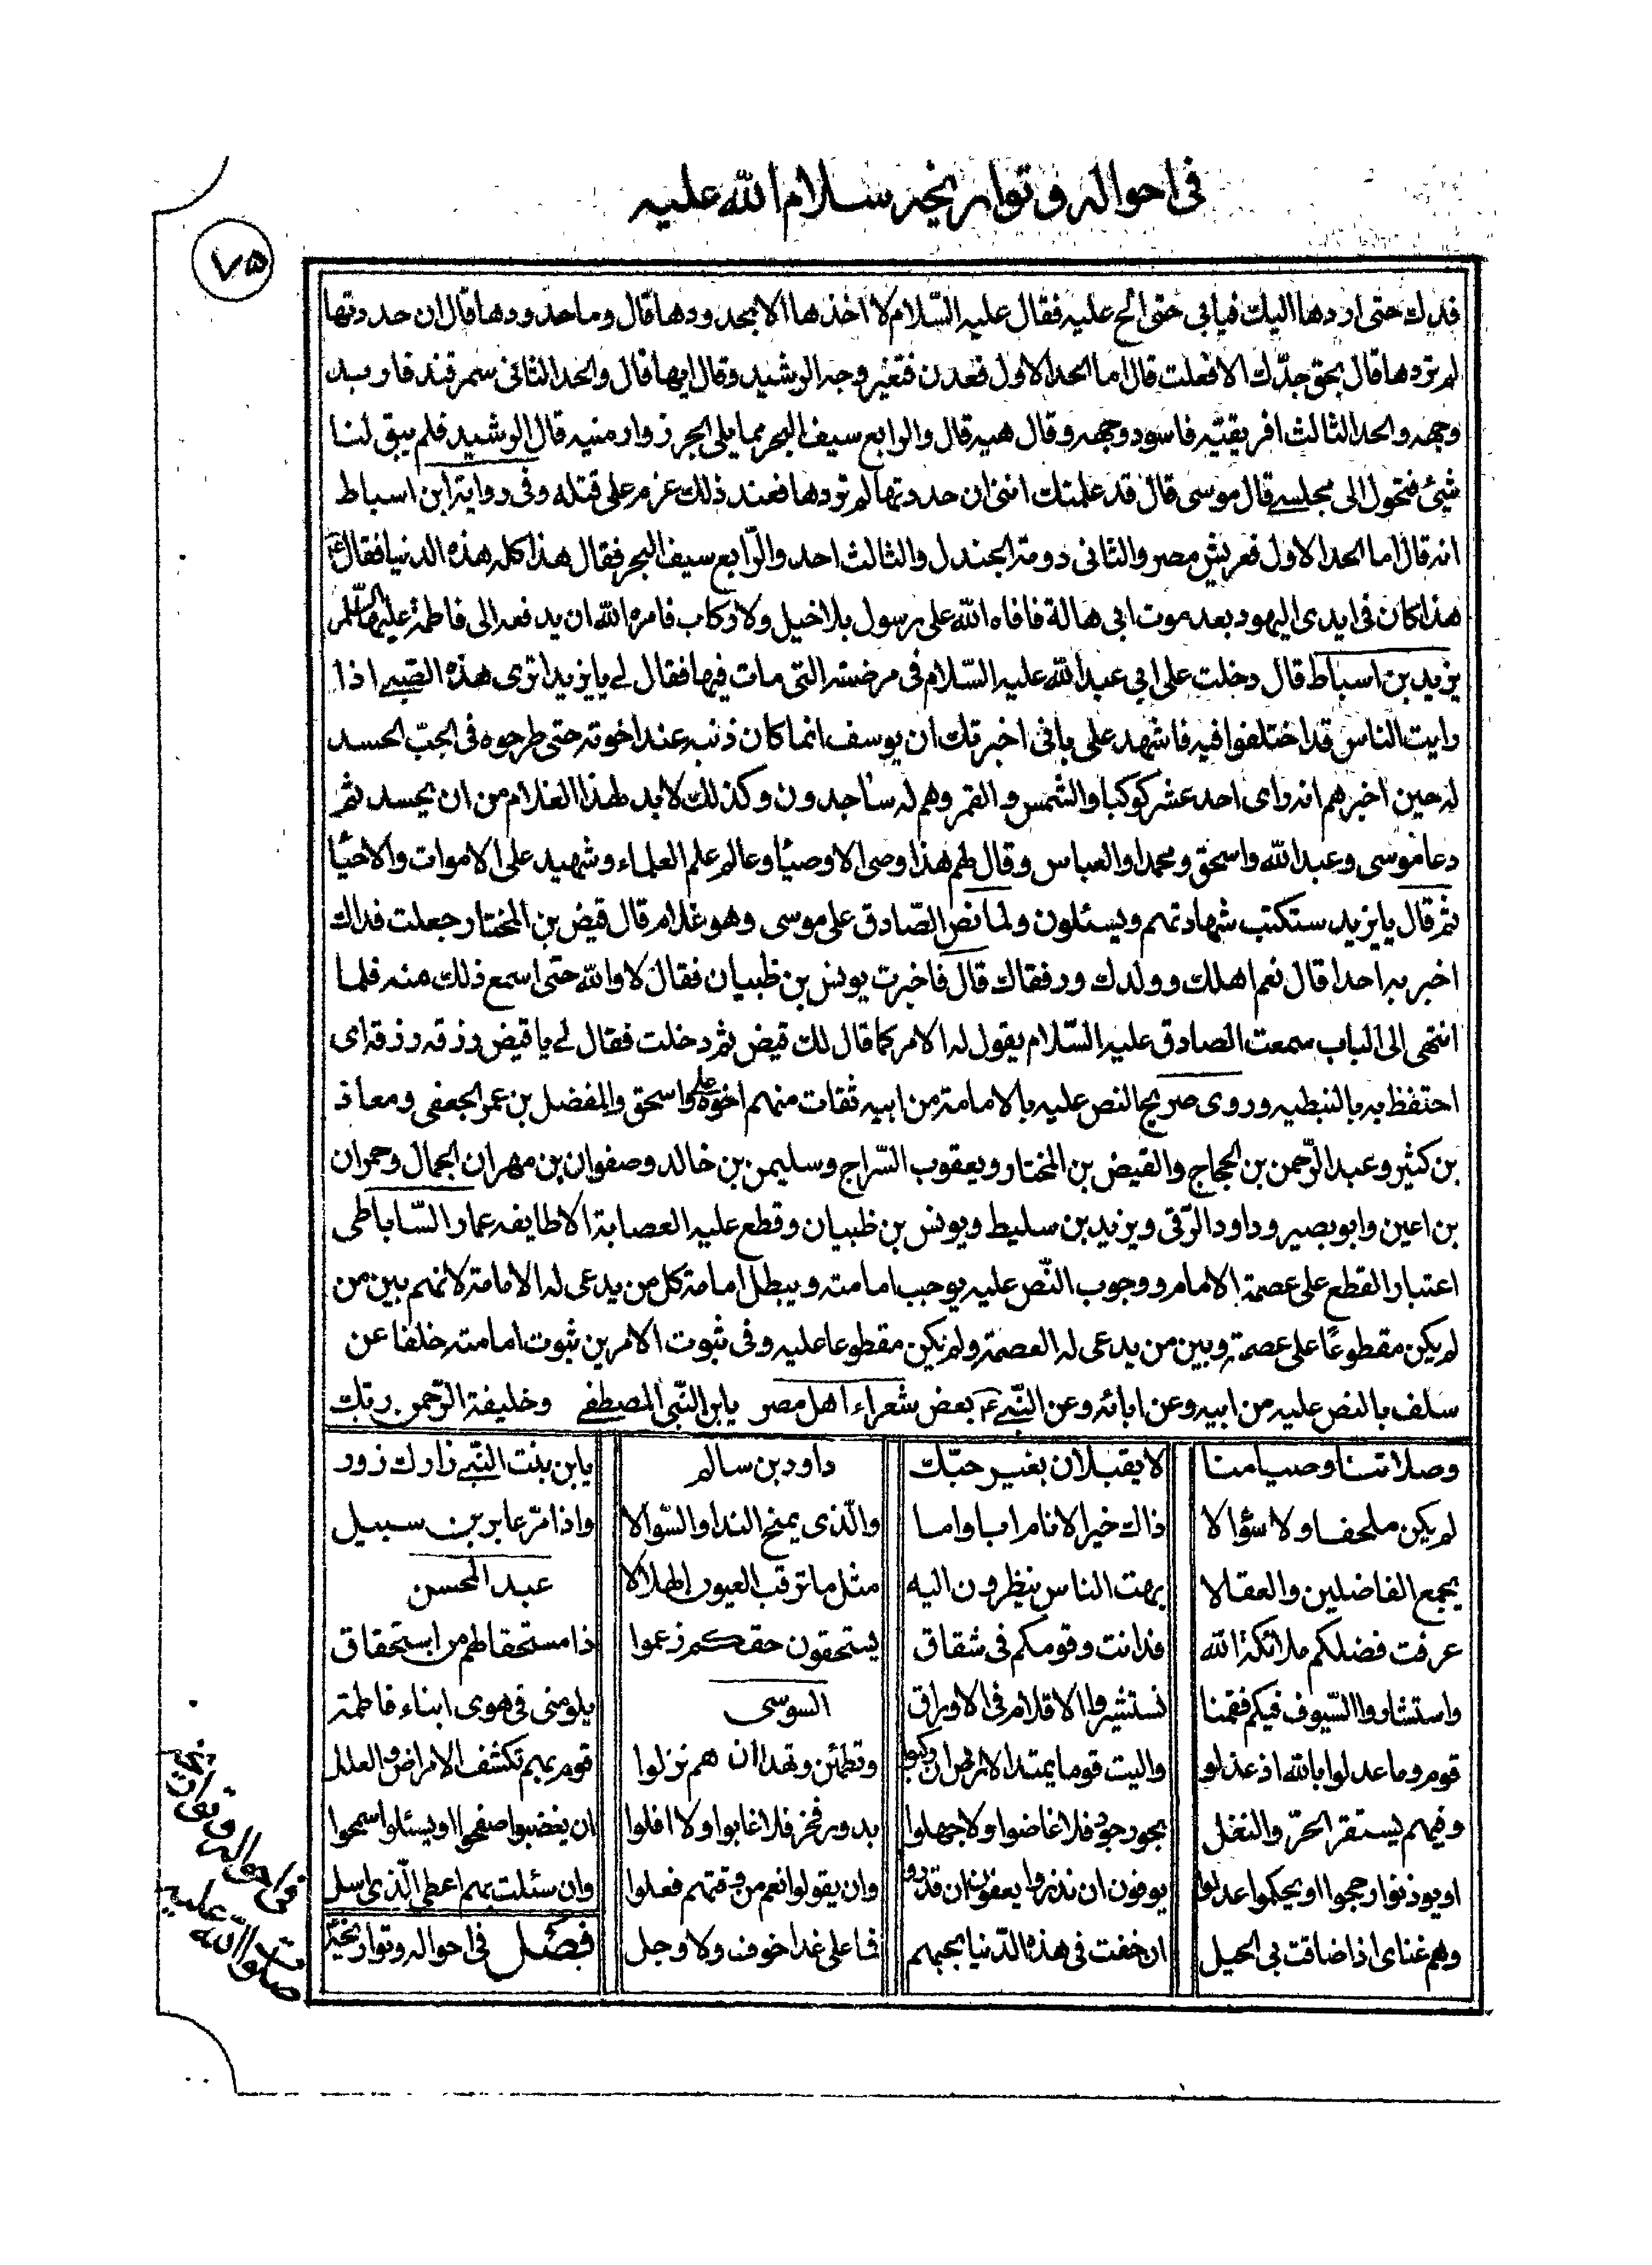 فى احواله وتواريخه سلام الله عليه
٧٥
فدك حتى اردها اليك فيابى حتى الح عليه فقال عليه السّلام لا اخذها الا بحدودها قال وما حدودها قال ان حددتها
لم تردها قال بحق جدّك الا فعلت قال اما الحد الاول فعدن فتغير وجه الرشيد وقال ايها قال والحد الثانى سمرقند فاربد
وجهه والحد الثالث افريقيّه فاسود وجهه وقال هيه قال والرابع سيف البحر مما يلى الجرز وارمنيه قال الرشيد فلم يبق لنا
شئ فتحول الى مجلسى قال موسى قال قد علمتك اننى ان حددتها لم تردها فعند ذلك عزم على قتله وفى رواية ابن اسباط
انه قال اما الحد الاول فعريش مصر والثانى دومة الجندل والثالث احد والرّابع سيف البحر فقال هذا كله هذه الدنيا فقال ع
هذا كان فى ايدى اليهود بعد موت ابى هالة فافاه الله على رسول بلا خيل ولا ركاب فامره الله ان يدفعه الى فاطمة عليها السّلام
يزيد بن اسباط قال دخلت على ابى عبد الله عليه السّلام فى مرضته التى مات فيها فقال لے يا يزيد اترى هذه الصبے اذا
رايت الناس قد اختلفوا فيه فاشهد على بانى اخبرتك ان يوسف انما كان ذنبه عند اخوته حتى طرحوه فى الجبّ الحسد
له حين اخبرهم انه راى احد عشر كوكبا والشمس والقمر وهم له ساجدون وكذلك لابد لهذا الغلام من ان يحسد ثم
دعا موسى وعبد الله واسحق ومحمدا والعباس وقال لهم هذا وصى الاوصيآ وعالم علم العلماء وشهيد على الاموات والاحيآ
ثم قال يا يزيد ستكتب شهادتهم ويسئلون ولما نص الصّادق على موسى وهو غلام قال قيض بن المختار جعلت فداك
اخبر به احدا قال نعم اهلك وولدك ورفقاك قال فاخبرت يونس بن ظبيان فقال لا والله حتى اسمع ذلك منه فلما
انتهى الى الباب سمعت الصادق عليه السّلام يقول له الامر كما قال لك قيض ثم دخلت فقال لے يا قيض رزقه رزقه اى
احتفظ به بالنبطيه وروى صريح النص عليه بالامامة من ابيه ثقات منهم اخوه على واسحق والمفضل بن عمر الجعفى ومعاذ
بن كثير وعبد الرّحمن بن الحجاج والقيض بن المختار ويعقوب السّراج وسليمن بن خالد وصفوان بن مهران الجمال وحمران
بن اعين وابو بصير وداود الرّقى ويزيد بن سليط ويونس بن ظبيان وقطع عليه العصابة الا طايفه عمار السّاباطى
اعتبار القطع على عصمة الامام ووجوب النّص عليه يوجب امامته ويبطل امامة كل من يدعى له الامامة لانهم بين من
لم يكن مقطوعًا على عصمته وبين من يدعى له العصمة ولم نكن مقطوعا عليه وفى ثبوت الامرين ثبوت امامته خلفا عن
سلف بالنص عليه من ابيه وعن ابائه وعن النّبے ع بعض شعراء اهل مصر يابن النّبى المصطفے وخليفة الرّحمن ربّك
وصلاتنا وصيامنا لا يقبلان بغير حبّك داود بن سالم يابن بنت النّبے زارك زور
لم يكن ملحفا ولا سؤالا ذاك خير الانام ابا واما والّذى يمنح الندا والسّوالا واذا مرّ عابر بن سبيل
يجمع الفاضلين والعقالا بهت الناس ينظرون اليه مثل ما ترقب العيون الهلالا عبد المحسن
عرفت فضلكم ملائكة الله فدانت وقومكم فى شقاق يستحقون حقكم زعموا ذا مستحقا لهم من استحقاق
واستشاروا السّيوف فيكم فقمنا نستشير الاقلام فى الاوراق السوسى يلومنى فى هوى ابناء فاطمة
قوم وما عدلوا بالله اذ عذلوا واليت قوما تميد الارض ان ركبوا وتطمئن وتهدا ان هم نزلوا قوم بهم تكشف الامراض والعلل
وفيهم يستقر الحرّ والنغل بحور جود فلا غاضوا ولا جهلوا بدور فخر فلا غابوا ولا افلوا ان يغضبوا صفحوا او يسئلوا سمحوا
او يوذنوا رجحوا او يحكموا عدلوا يوفون ان نذروا يعفون ان قدروا وان يقولوا نعم من وقتهم فعلوا وان سئلت بهم اعطى الّذى اسل
وهم غناى اذا ضاقت بى الحيل ان خفت فى هذه الدّنيا بحبهم فما على غدا خوف ولا وجل فصل فى احواله وتواريخه
فى احواله وتواريخه
صلوات الله عليه